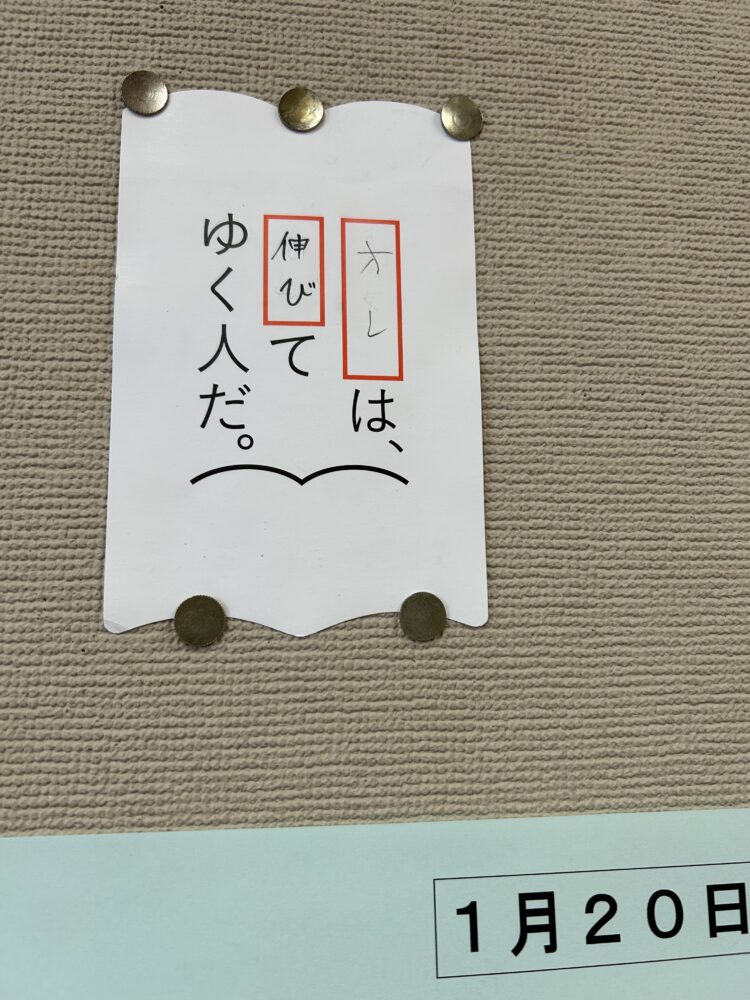 オレは、
伸びて
ゆく人だ。
1月20日